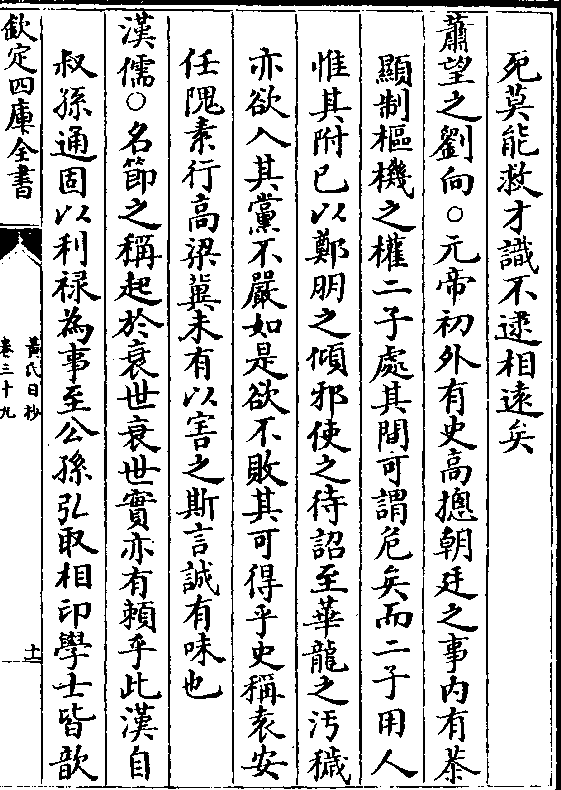 死莫能救才識不逮相遠矣
蕭望之劉向○元帝初外有史高摠朝廷之事内有恭
顯制樞機之權二子處其間可謂危矣而二子用人
惟其附已以鄭朋之傾邪使之待詔至華龍之汚穢
亦欲入其黨不嚴如是欲不敗其可得乎史稱袁安
任隗素行高梁冀未有以害之斯言誠有味也
漢儒○名節之稱起於衰世衰世實亦有頼乎此漢自
叔孫通固以利禄為事至公孫弘取相印學士皆歆
欽定四庫全書
黄氏日抄
卷三十九
十一